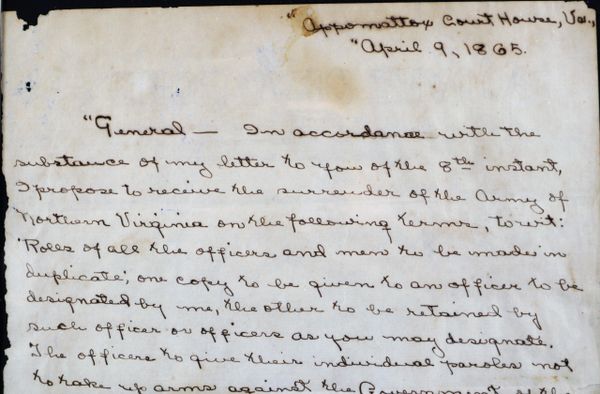 "Appomattox Court House, Va.,
"April 9, 1865.
"General — In accordance with the
substance of my letter to you of the 8th instant,
I propose to receive the surrender of the Army of
Northern Virginia on the following terms, to wit:
'Rolls of all the officers and men to be made in
duplicate; one copy to be given to an officer to be
designated by me, the other to be retained by
such officer or officers as you may designate.
The officers to give their individual paroles not
to take up arms against the Government of the